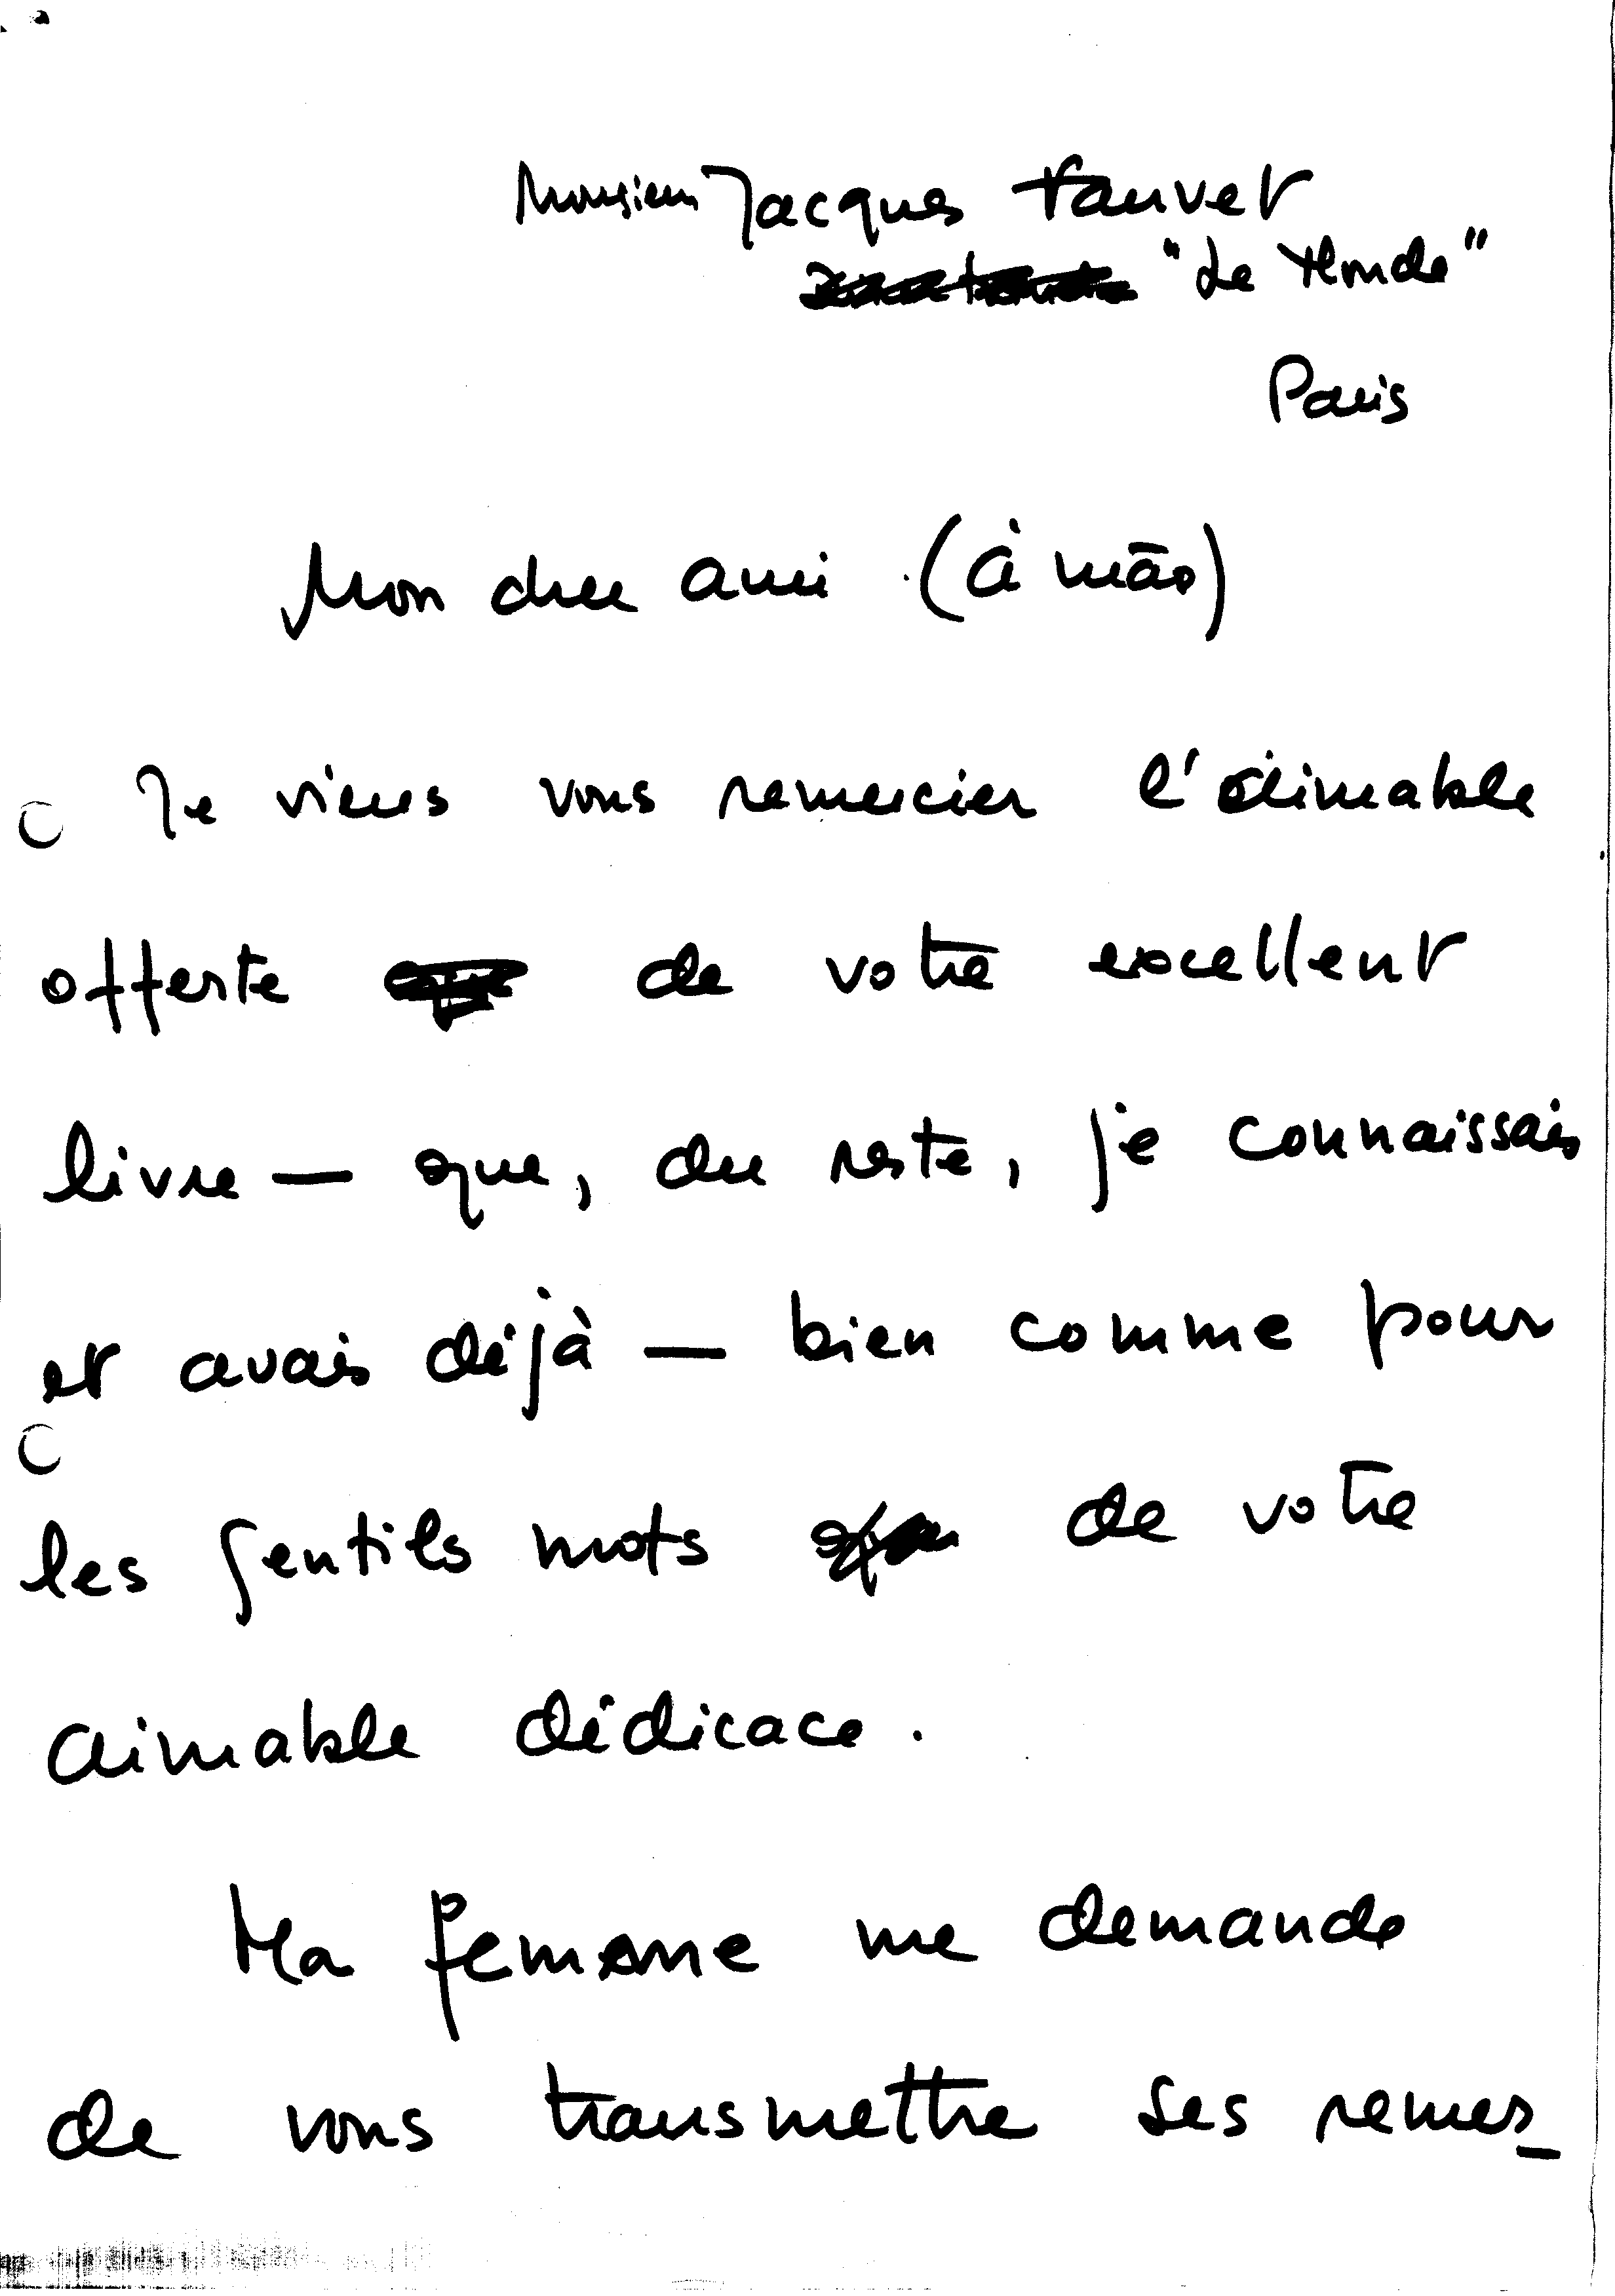 Monsieur Jacques Fauvet
"Le Monde"
Paris
Mon cher ami (à mão)
Je viens vous remercier l'aimable
offerte de votre excellent
livre — que, du reste, je connaissais
et avais déjà — bien comme pour
les gentils mots de votre
aimable dédicace.
Ma femme me demande
de vous transmettre ses remer_